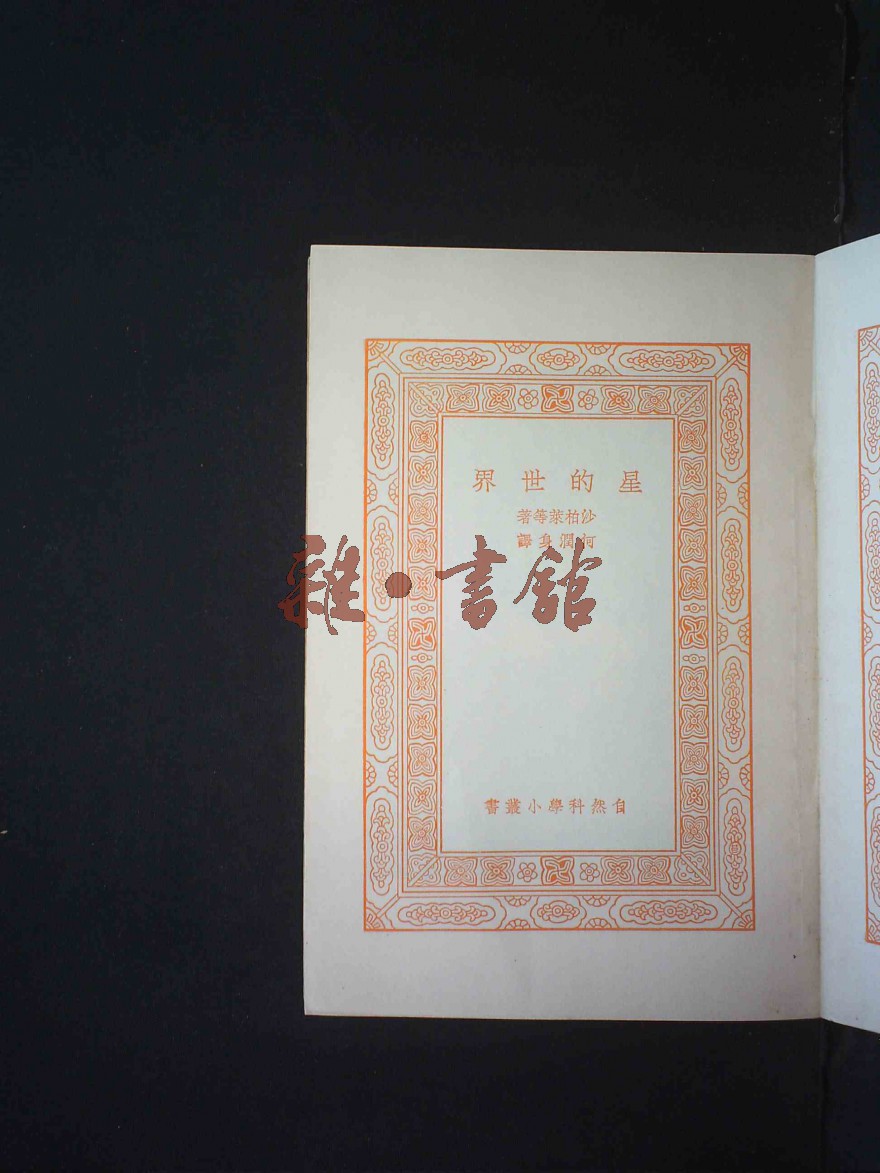 星的世界
沙柏萊等著
柯潤身譯
雜·書館
自然科學小叢書